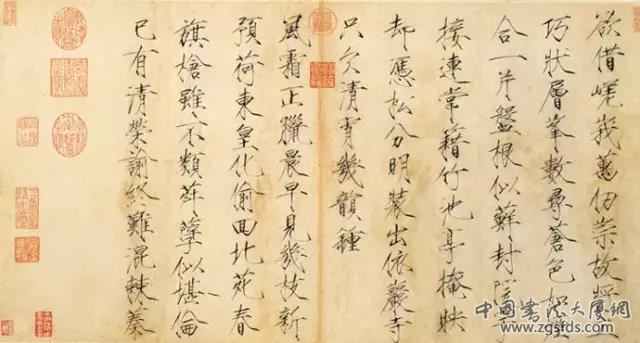 欲借嵯峩萬仞崇故將工
巧狀層峯數尋蒼色如煙
合一片盤根似蘚封院宇
接連常籍竹池亭掩映
却憑松分明裝出依巖寺
只欠清宵幾韻鍾
風霜正臘晨早見幾枝新
預荷東皇化偷回北苑春
旗槍雖不類荈孽似堪倫
已有清榮諭終難混棘蓁
中国书法大厦网
www.zgsfds.com